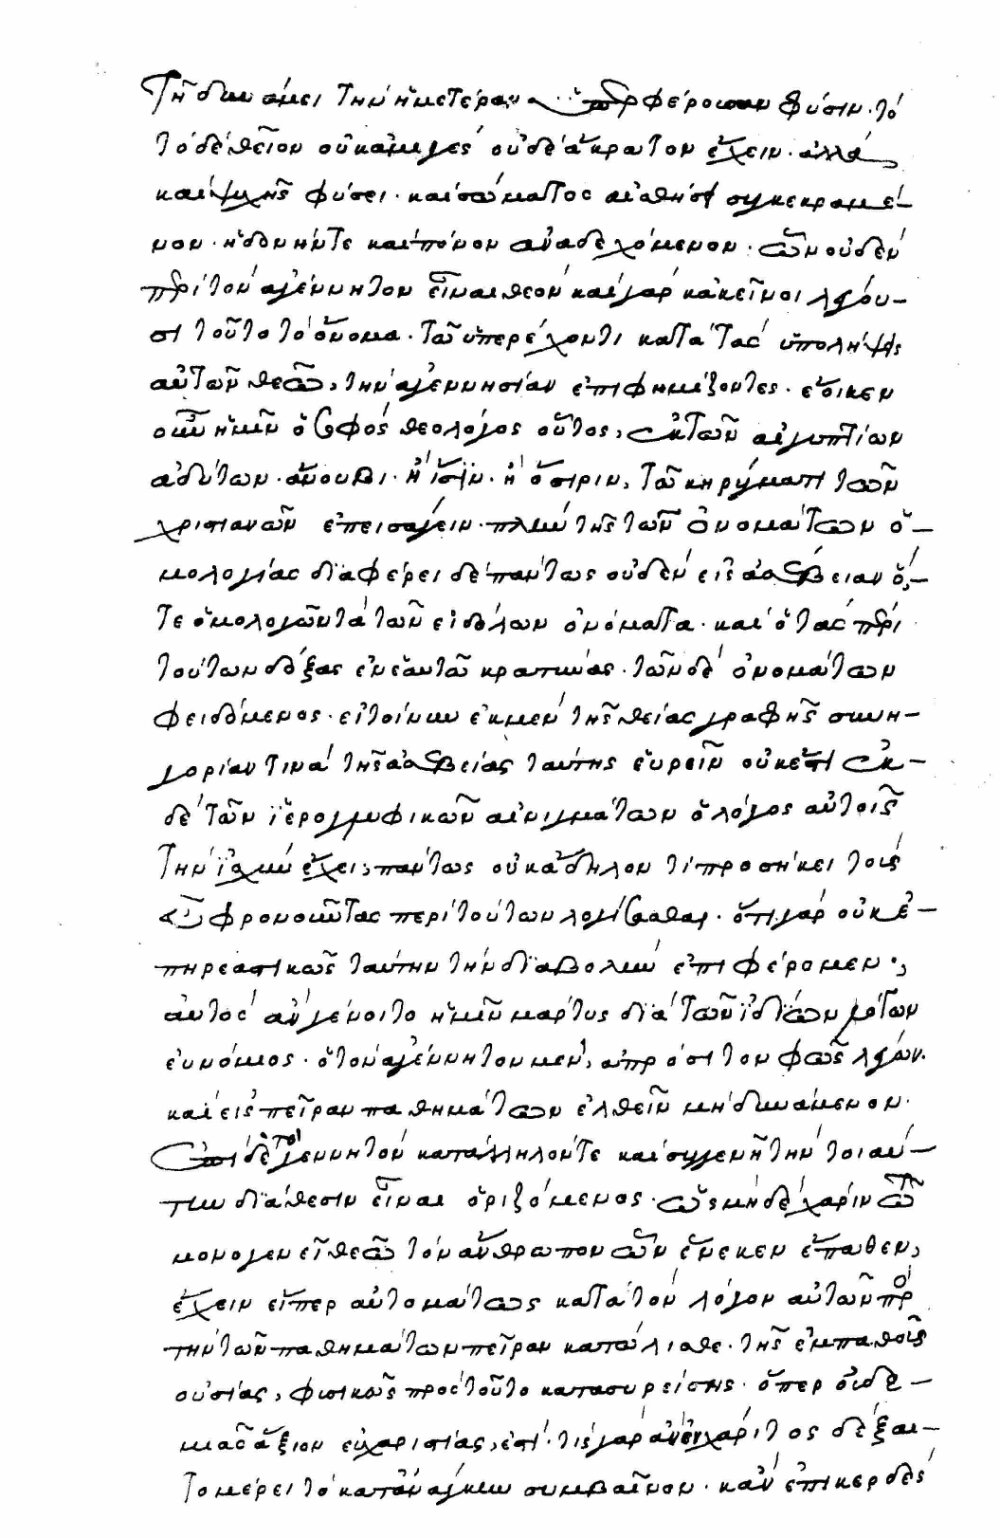 Τῇ δυνάμει τὴν ἡμετέραν ὑπερφέρουσαν φύσιν· τὸ
τὸ δὲ θεῖον οὐκ ἀμιγὲς οὐδὲ ἄκρατον ἔχειν· ἀλλὰ
καὶ ψυχῆς φύσει· καὶ σώματος αἰσθήσει συγκεκραμέ-
νον· ἡδονήν τε καὶ πόνον ἀναδεχόμενον· ὧν οὐδὲν
περὶ τὸν ἀγέννητον εἶναι θεόν καὶ γὰρ κἀκεῖνοι λέγου-
σι τοῦτο τὸ ὄνομα· τῶ ὑπερέχοντι κατὰ τὰς ὑπολήψεις
αὐτῶν θεῶ, τὴν ἀγεννησίαν ἐπιφημίζοντες· ἔοικεν
οὖν ἡμῖν ὁ σοφὸς θεολόγος οὗτος, ἐκ τῶν αἰγυπτίων
ἀδύτων· ἄνουβι· ἢ ἴσιν· ἢ ὄσιριν, τῶ κηρύγματι τῶν
χριστιανῶν ἐπεισάγειν· πλὴν τῆς τῶν ὀνομάτων ὁ-
μολογίας διαφέρει δὲ πάντως οὐδὲν εἰς ἀσέβειαν ὅ,-
τε ὁμολογῶν τὰ τῶν εἰδώλων ὀνόματα· καὶ ὁ τὰς περὶ
τούτων δόξας ἐν ἑαυτῶ κρατύνας· τῶν δὲ ὀνομάτων
φειδόμενος· εἰ τοίνυν ἐκ μὲν τῆς θείας γραφῆς συνη-
γορίαν τινὰ τῆς ἀσεβείας ταύτης εὑρεῖν οὐκ ἔστι ἐκ-
δὲ τῶν ἱερογλυφικῶν αἰνιγμάτων ὁ λόγος αὐτοῖς
τὴν ἰσχὺν ἔχει, πάντως οὐκ ἄδηλον τί προσήκει τοὺς
εὖ φρονοῦντας περὶ τούτων λογίσασθαι· ὅτι γὰρ οὐκ ἐ-
πηρεαστικῶς ταύτην τὴν διαβολὴν ἐπιφέρομεν·,
αὐτὸς ἂν γένοιτο ἡμῖν μάρτυς διὰ τῶν ἰδίων ῥότων
εὐνόμιος· ὁ τὸν ἀγέννητον μὲν, ἀπρόσιτον φῶς λέγων·
καὶ εἰς πεῖραν παθημάτων ἐλθεῖν μὴ δυνάμενον·
ἐπὶ δὲ τὸν γεννητὸν κατάλληλόν τε καὶ συγγενῆ τὴν τοιαύ-
την διάθεσιν εἶναι ὁριζόμενος· ὡς μηδὲ χάριν τῶ
μονογενεῖ θεῶ τὸν ἄνθρωπον ὧν ἕνεκεν ἔπαθεν,
ἔχειν εἴπερ αὐτομάτως κατὰ τὸν λόγον αὐτῶν πρὸς
τὴν τῶν παθημάτων πεῖραν κατώλισθε· τῆς ἐμπαθοῦς
οὐσίας, φυσικῶς πρὸς τοῦτο κατασυρείσης· ὅπερ οὐδε-
μιᾶς ἄξιον εὐχαριστίας, ἐστὶ· τίς γὰρ ἂν ἐν χάριτος δέξαι-
το μέρει τὸ κατ' ἀνάγκην συμβαῖνον· κἂν ἐπικερδὲς